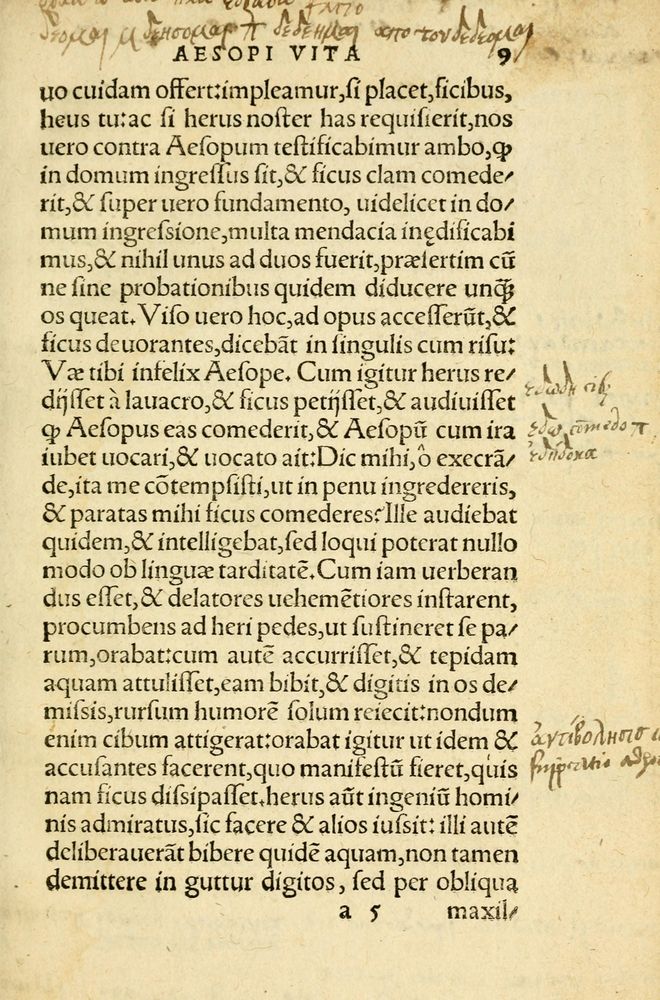 δεομαι δεησομαι π δεδεημαι απο του δεδεομαι
AESOPI VITA 9
uo cuidam offert:impleamur,si placet,ficibus,
heus tu:ac si herus noster has requisierit,nos
uero contra Aesopum testificabimur ambo,ꝙ
in domum ingressus sit,& ficus clam comede/
rit,& super uero fundamento, uidelicet in do/
mum ingressione,multa mendacia inędificabi
mus,& nihil unus ad duos fuerit,præsertim cū
ne sine probationibus quidem diducere unꝙ̄
os queat.Viso uero hoc,ad opus accesserūt,&
ficus deuorantes,dicebāt in singulis cum risu:
Væ tibi infelix Aesope. Cum igitur herus re/
dijsset à lauacro,& ficus petijsset,& audiuisset
ꝙ Aesopus eas comederit,& Aesopū cum ira
iubet uocari,& uocato ait:Dic mihi,ô execrā/
de,ita me cōtempsisti,ut in penu ingredereris,
& paratas mihi ficus comederes? Ille audiebat
quidem,& intelligebat,sed loqui poterat nullo
modo ob linguæ tarditatē.Cum iam uerberan
dus esset,& delatores uehemētiores instarent,
procumbens ad heri pedes,ut sustineret se pa/
rum,orabat:cum autē accurrisset,& tepidam
aquam attulisset,eam bibit,& digitis in os de/
missis,rursum humorē solum reiecit:nondum
enim cibum attigerat:orabat igitur ut idem &
accusantes facerent,quo manifestū fieret,quis
nam ficus dissipasset.herus aūt ingeniū homi/
nis admiratus,sic facere & alios iussit: illi autē
deliberauerāt bibere quidē aquam,non tamen
demittere in guttur digitos, sed per obliqua
a 5 maxil/
εδω comedo π
εδηδοκα